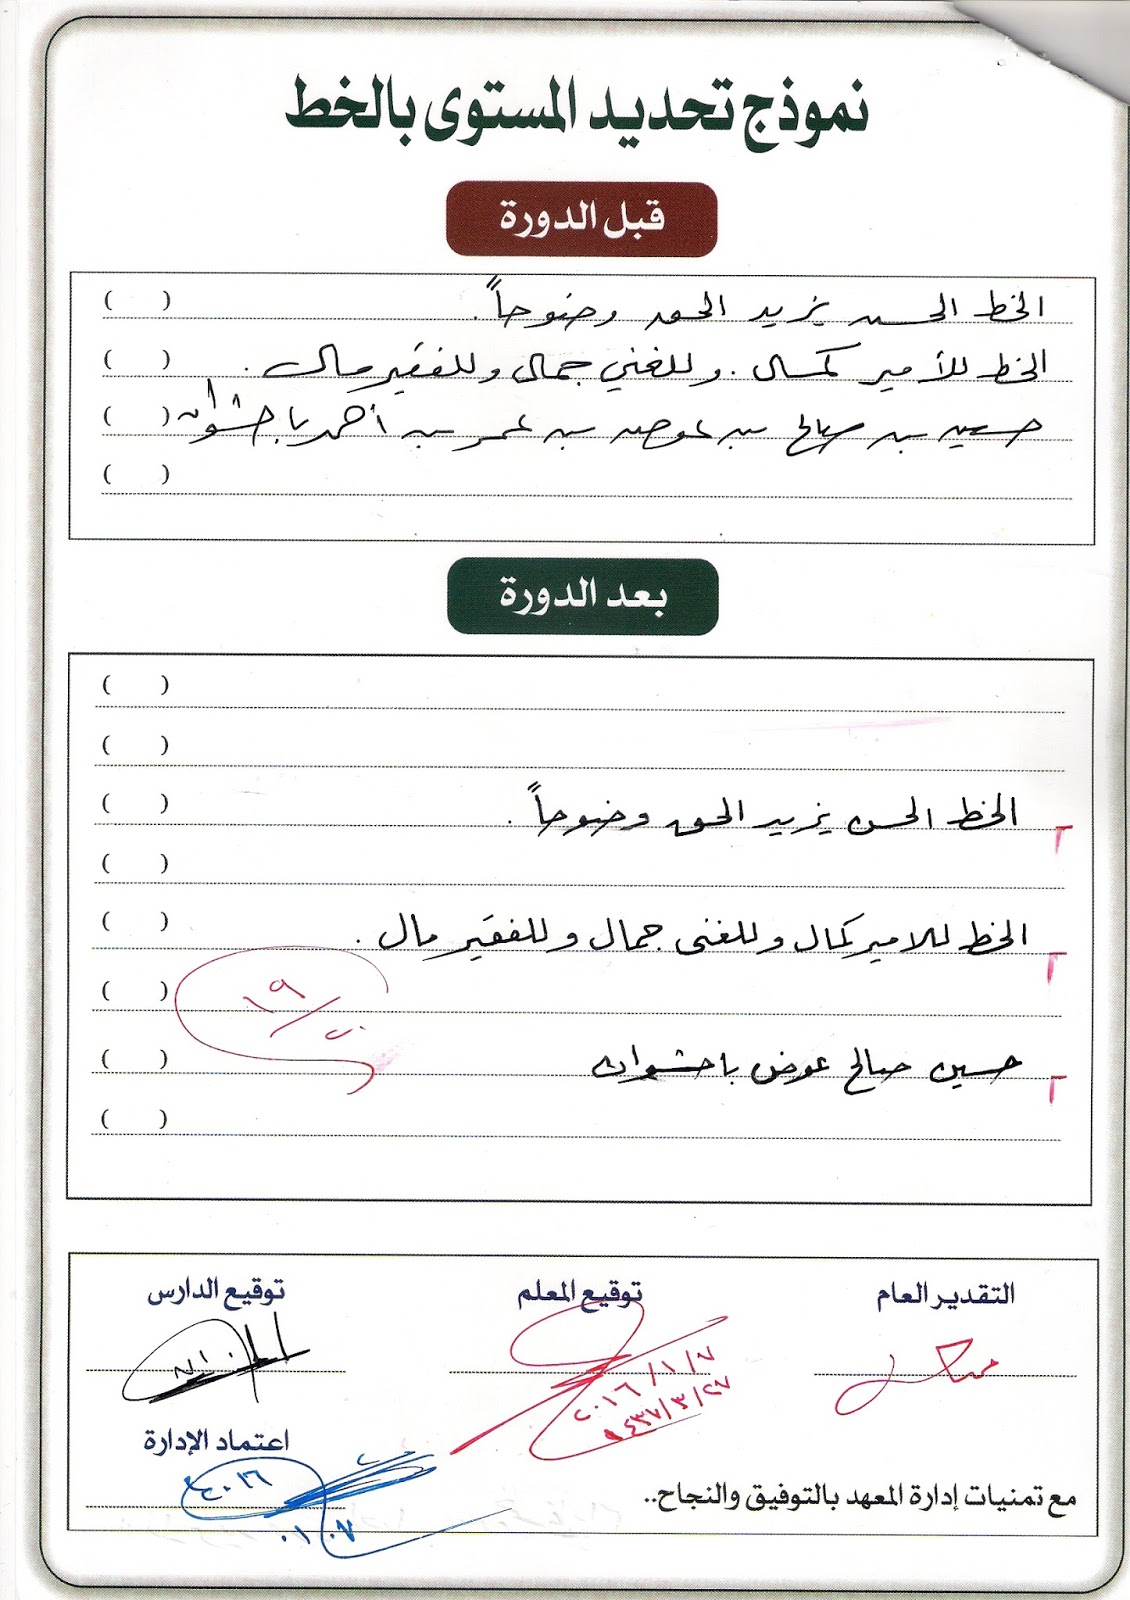 نموذج تحديد المستوى بالخط
قبل الدورة
الخط الحسن يزيد الحق وضوحاً.
( )
الخط للأمير كمال . وللغني جمال وللفقير مال .
( )
حسين بن صالح بن عوض بن عمر بن أحمد باحشوان
( )
( )
بعد الدورة
( )
( )
الخط الحسن يزيد الحق وضوحاً .
( )
( )
الخط للامير كمال وللغنى جمال وللفقير مال .
( )
( )
١٩/٢٠
حسين صالح عوض باحشوان
( )
( )
التقدير العام
توقيع المعلم
توقيع الدارس
ممتاز
٢٠١٦/١/٧
١٤٣٧/٣/٢٧
اعتماد الإدارة
٢٠١٦
٠١/٠٧
مع تمنيات إدارة المعهد بالتوفيق والنجاح..